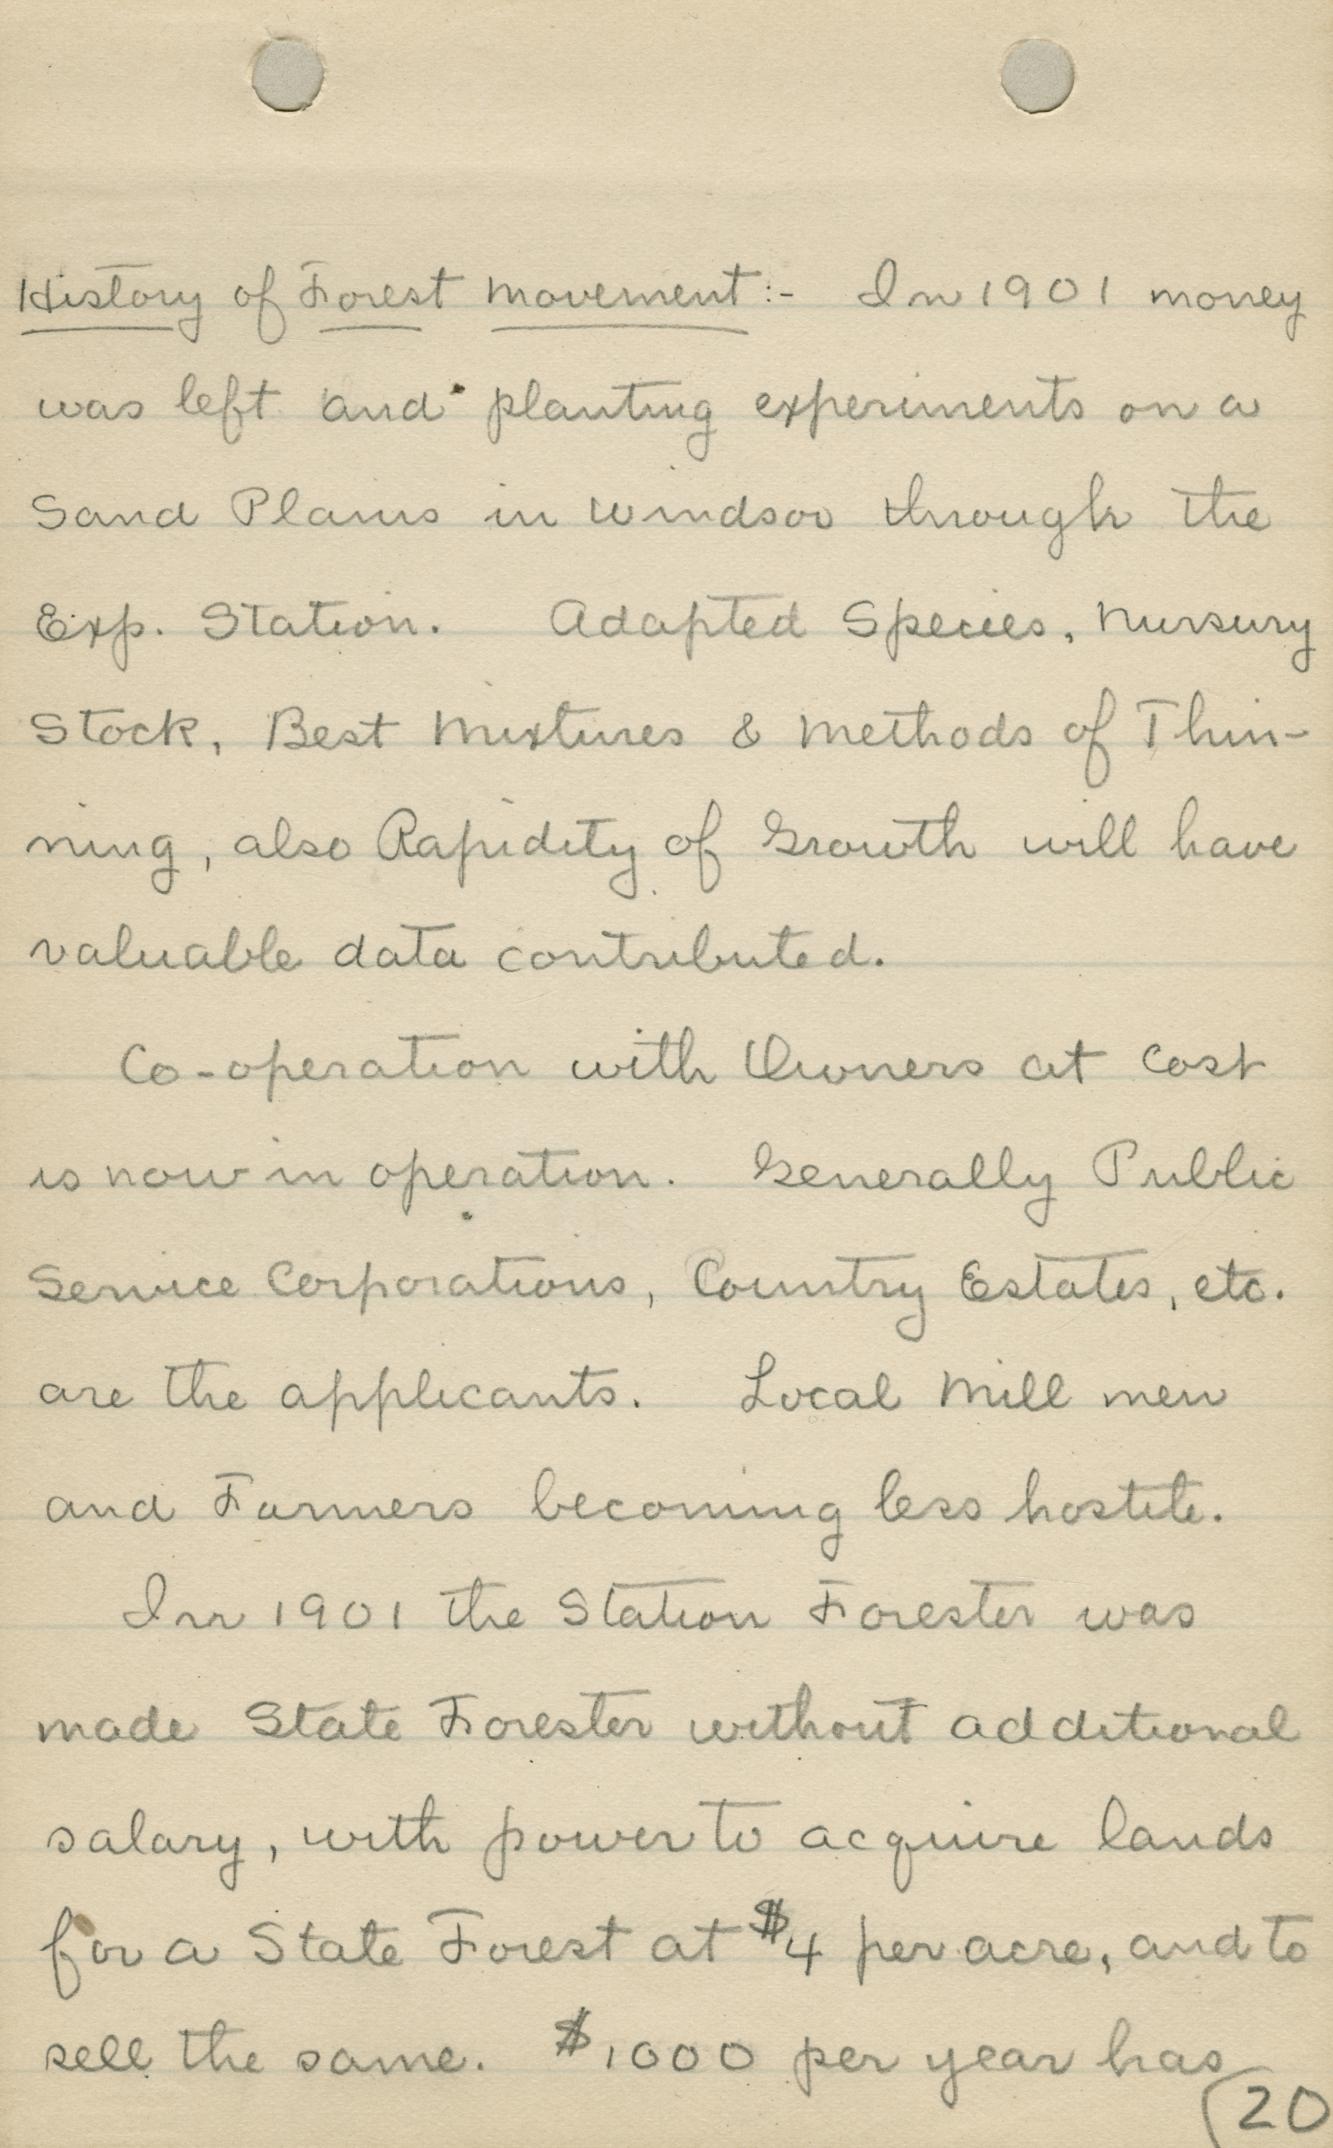 History of Forest Movement:- In 1901 money
was left and planting experiments on a
Sand Plains in Windsor through the
Exp. Station. Adapted Species, Nursury
Stock, Best Mixtures & Methods of Thin-
ning, also Rapidity of Growth will have
valuable data contributed.
Co-operation with Owners at Cost
is now in operation. Generally Public
Service Corporations, Country Estates, etc.
are the applicants. Local Mill men
and Farmers becoming less hostile.
In 1901 the Station Forester was
made State Forester without additional
salary, with power to acquire lands
for a State Forest at $4 per acre, and to
sell the same. $1000 per year has
20